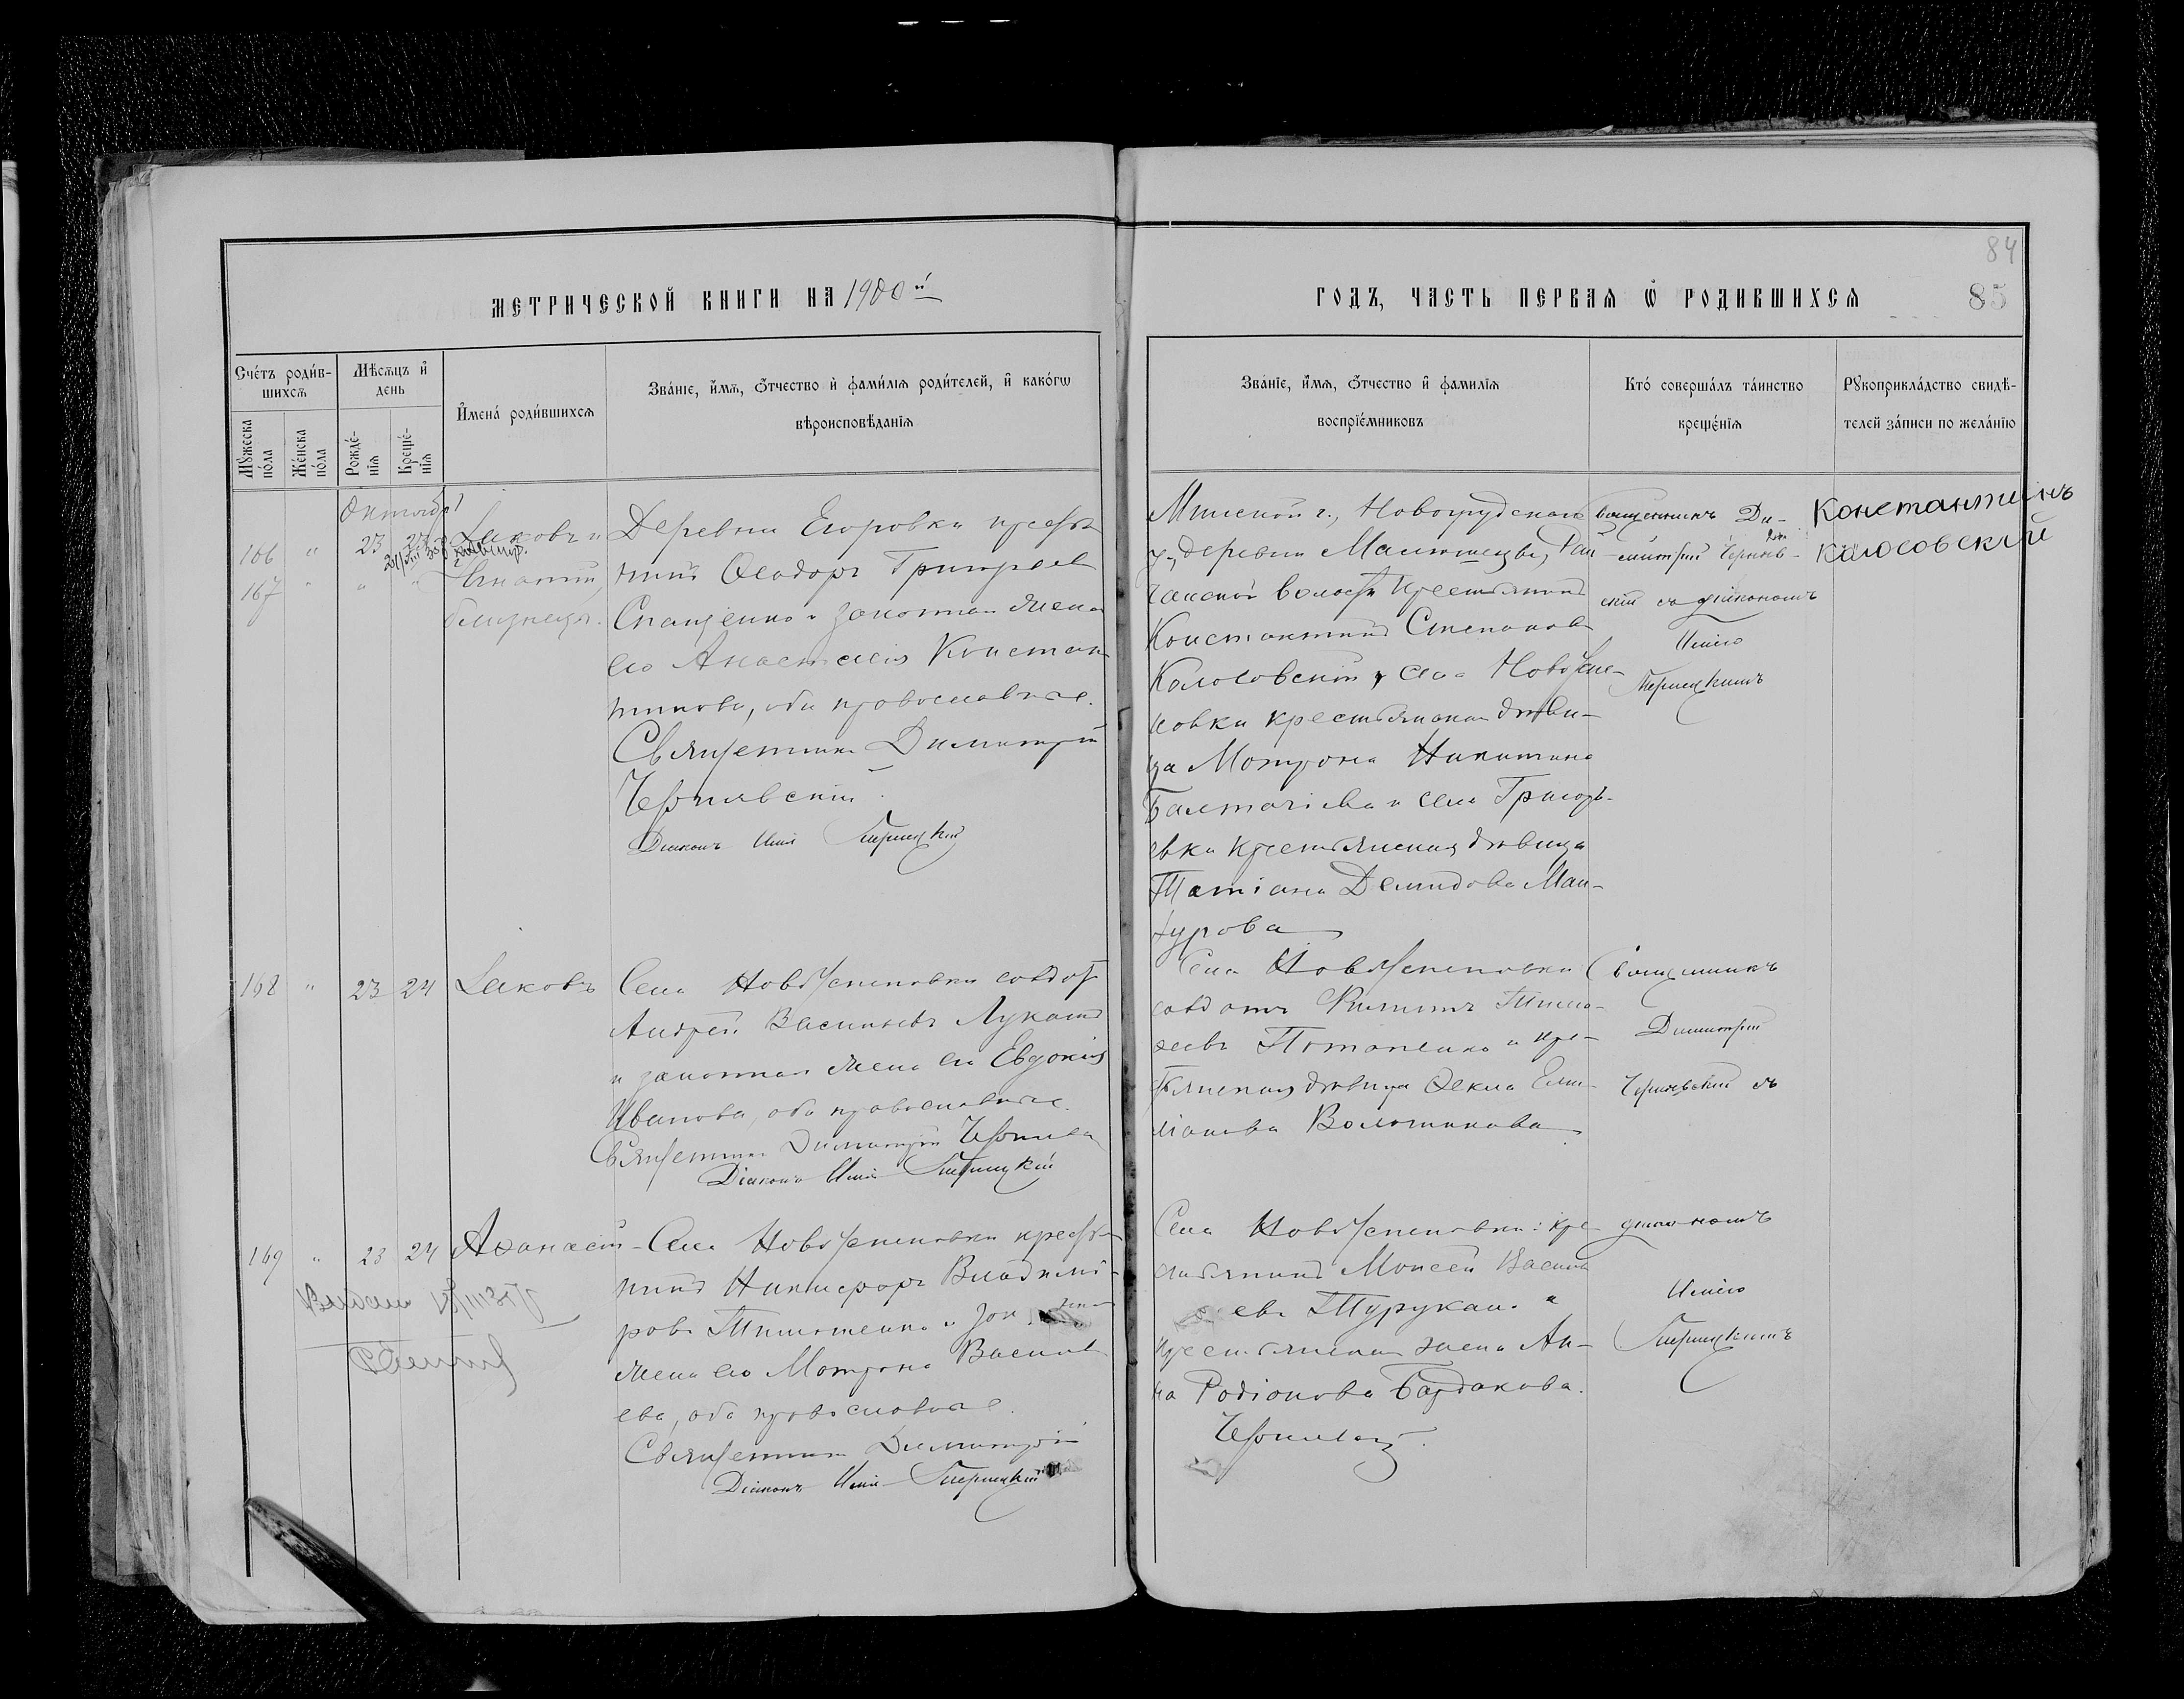 84
МЕТРИЧЕСКОЙ КНИГИ НА 1900й
ГОДЪ, ЧАСТЬ ПЕРВАЯ Ѡ РОДИВШИХСЯ
85
Счетъ родив-
шихся
Мужеска
пола
Женска
пола
Мѣсяцъ и
день
Рожде-
нія
Креще-
нія
Имена родившихся
Званіе, имя, отчество и фамилія родителей, и какогѡ
вѣроисповѣданія
Званіе, имя, отчество и фамилія
воспріемниковъ
Кто совершалъ таинство
крещенія
Рукоприкладство свидѣ-
телей записи по желанію
Октябрь
166 " 23 Іаковъ и
167 " " " Игнатій,
близнецы.
Деревни Егоровки кресть
нинъ Ѳеодоръ Григорьев
и законная жена
его Анастасія Констан
тинова, оба православные.
Священникъ Димитрій
Чернявскій.
Діаконъ Илія
Минской г., Новогрудскаго
у., деревни
волости крестьянинъ
Константинъ Степановъ
Колосовскій, села НовоУспе-
новки крестьянская дѣви-
ца Матрона Никитина
Балтачіева и села Григорь-
евки крестьянская дѣвица
Татіана Демидова Ман-
гурова
Священникъ Ди-
митрій Черняв-
скій съ діакономъ
Иліею
Константинъ
Колосовскій
168 " 23 24 Іаковъ
Села НовоУспеновки солдат
Андрей Васильевъ Лукаш
и законная жена его Евдокія
Иванова, оба православные.
Священникъ Димитрій Чернявск
Діаконъ Илія
Села НовоУспеновки
солдатъ Филиппъ Тимо-
ѳеевъ Потапенко и кре-
стьянская дѣвица Ѳекла Еми-
ліанова
Священникъ
Димитрій
Чернявскій съ
169 " 23 24 Аѳанасій
Села НовоУспеновки кресть
нинъ Никифоръ Владимі-
ровъ Тимошенко и зак
жена его Матрона Василь
ева, оба православные.
Священникъ Димитрій
Діаконъ Илія
Села НовоУспеновки кре-
стьянинъ Моисей Василь
евъ Турукало и
крестьянская жена Ан-
на Родіонова Бардакова.
Чернявскій
діакономъ
Иліею